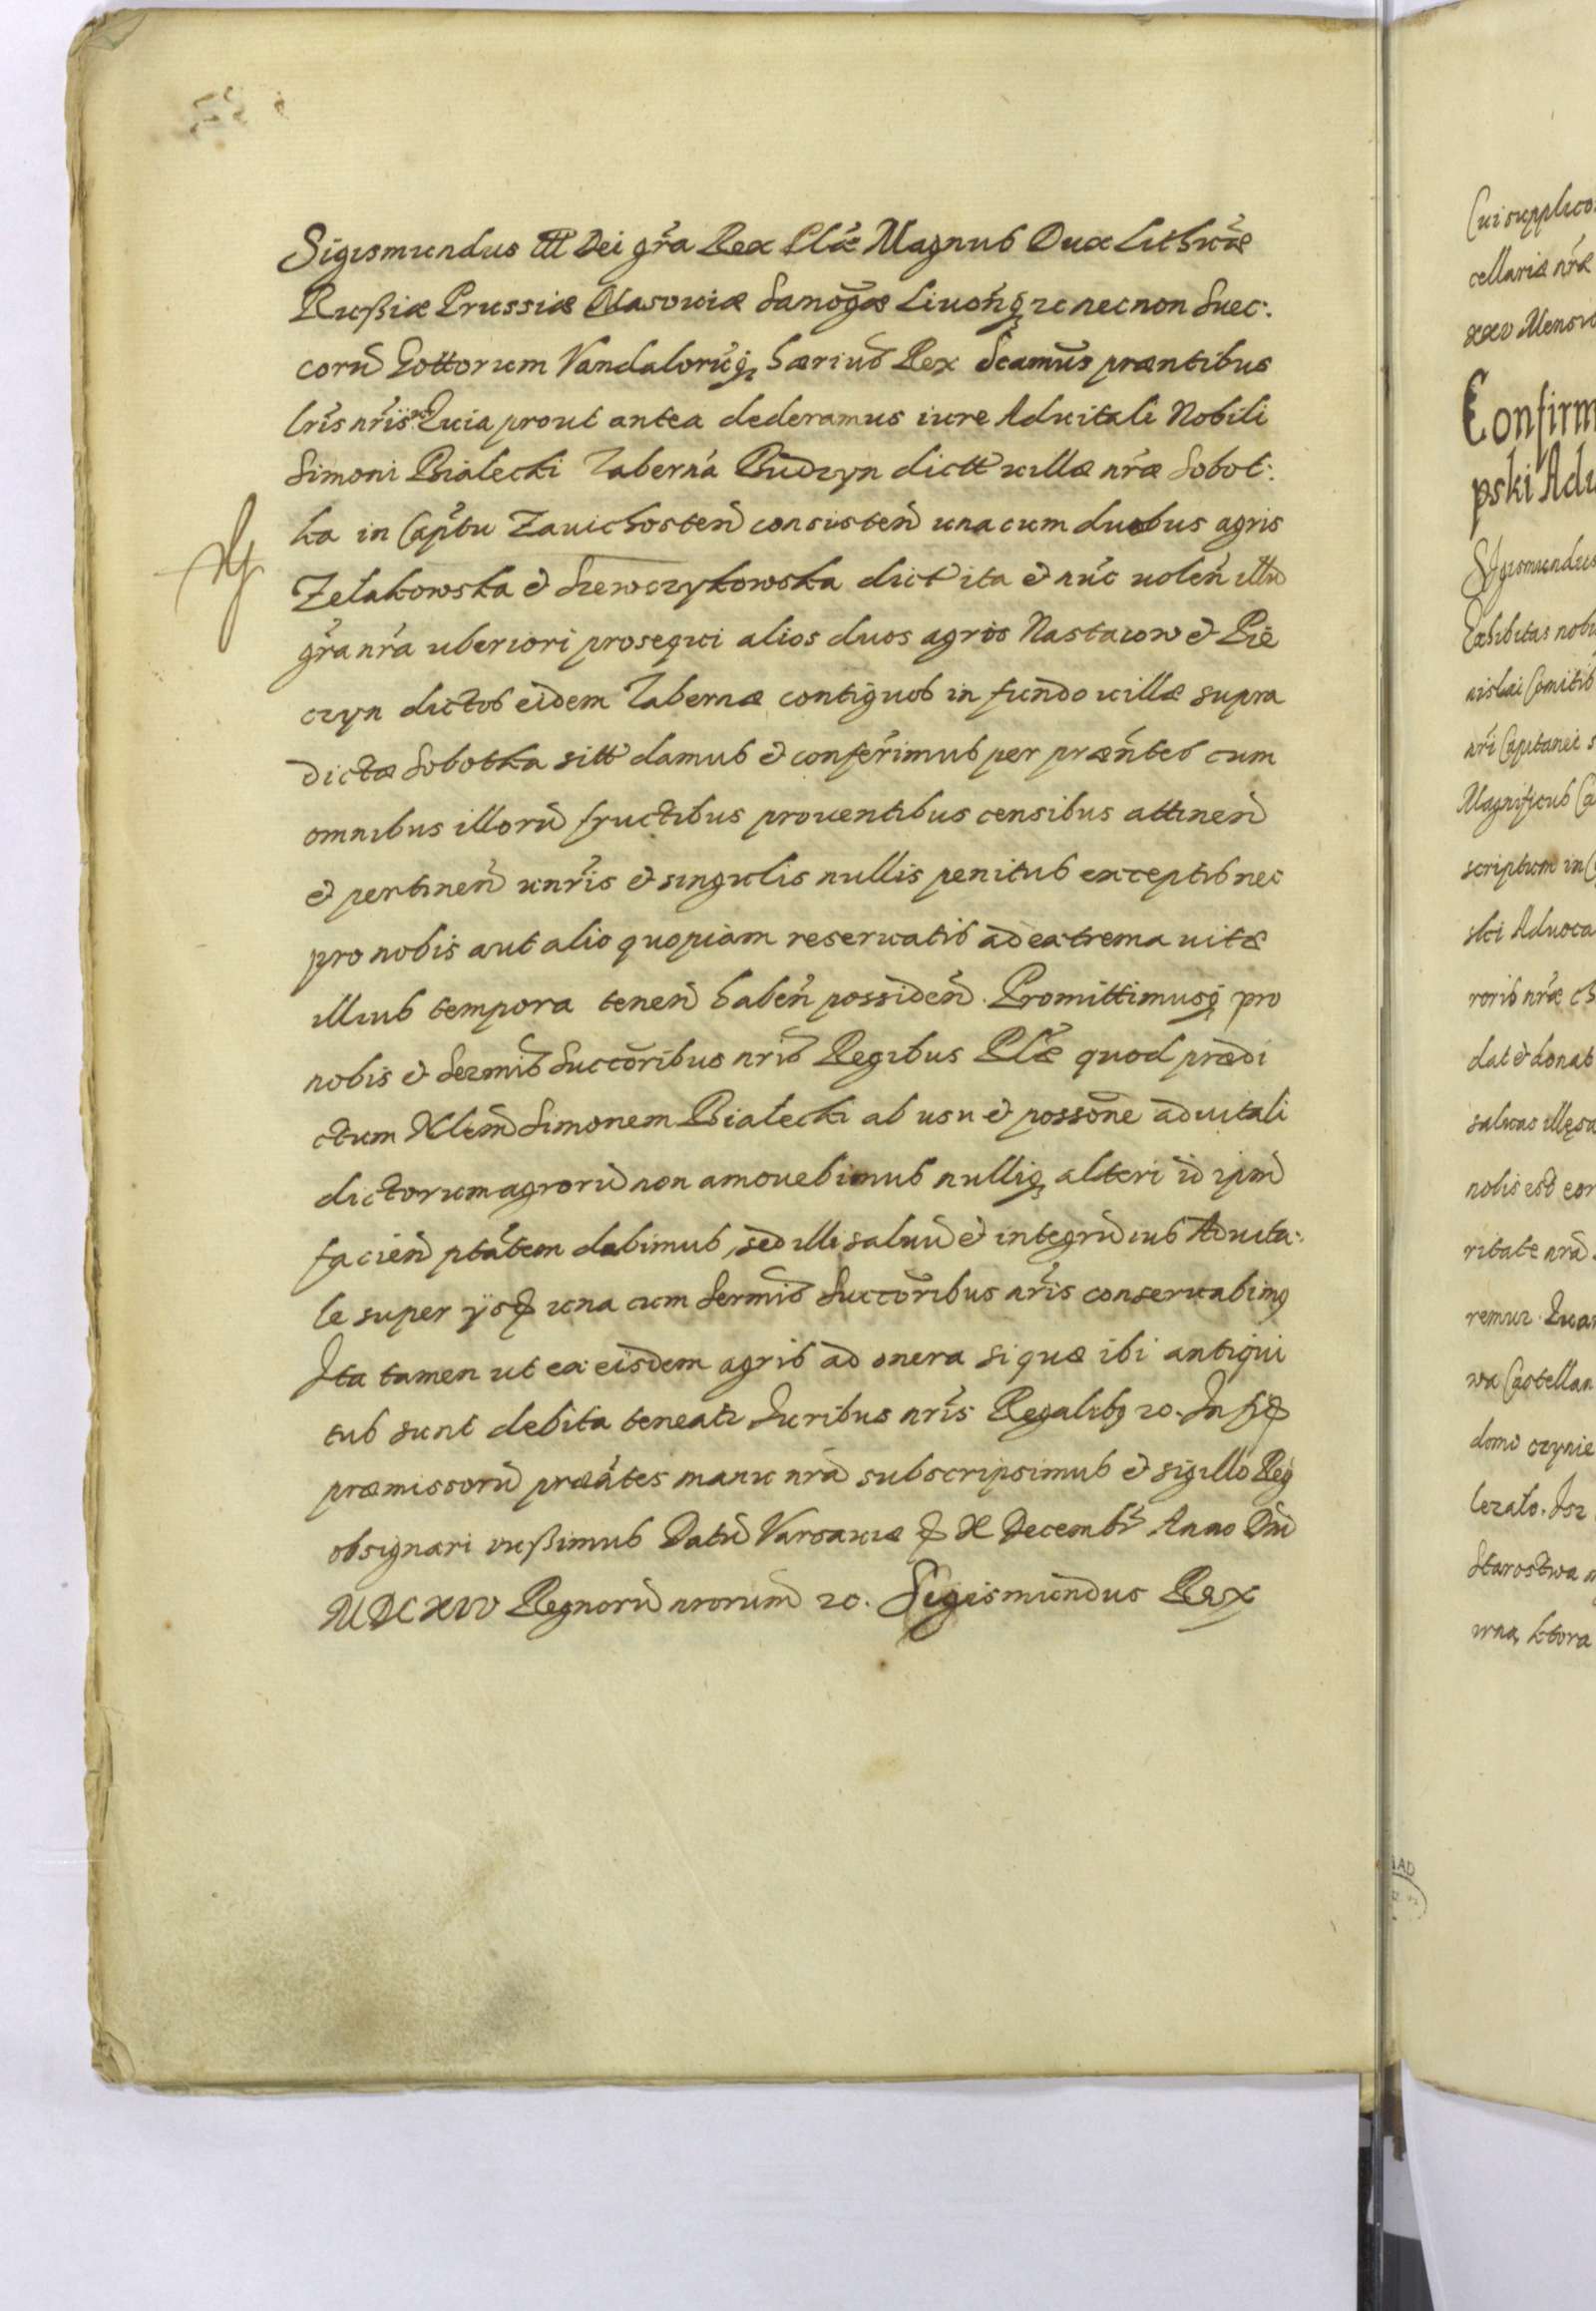 Sigismundus III Dei gra Rex Plæ Magnus Dux Lithuæ
Rußiæ Prussiæ Masouiæ Samogæ Liuonq; zc necnon Suec:
corũ Gottorum Vandalorũq; hærius Rex Scamus præntibus
lris nris Quia prout antea dederamus iure Aduitali Nobili
Simoni Bialecki Taberna Budzyn dictt uillæ nræ Sobot:
ka in Captu Zauichosteñ consisteñ una cum duobus agris
Zełakowska & Szewczykowska dict ita & nuc uoleñ illũ
gra nra uberiori prosequi alios duos agros Nastazow & Pie
czyn dictos eidem Tabernæ contiguos in fundo uillæ supra
dictæ Sobotka sitt damus & conferimus per præntes cum
omnibus illorũ fructibus prouentibus censibus attineñ
& pertineñ unris & singulis nullis penitus exceptis nec
pro nobis aut alio quopiam reseruatis ad extrema uitæ
illius tempora teneñ habeñ possideñ. Promittimusq; pro
nobis & Sermis Succoribus nris Regibus Plæ quod prædi
ctum Simonem Białecki ab usu & possone aduitali
dictorum agrorũ non amouebimus nulliq; alteri id ipm̃
facieñ ptatem dabimus, sed illi saluũ & integrũ ius Aduita:
le super ijs una cum Sermis Succoribus nris conseruabimꝯ
Ita tamen ut ex eisdem agris ad onera si quæ ibi antiqui
tus sunt debita teneatr Iuribus nris Regalibꝯ zc. In
præmissorũ præntes manu nra subscripsimus & sigillo Reg
obsignari iußimus Datũ Varsauiæ X Decembr Anno Dni
Regnorũ nrorum zc. Sigismundus Rex
Cui supplico
cellariæ nræ
Confirm
pski Adu
Sigismundus
Exhibitas nobi
nislai Comitis
nri Capitanei s
Magnificus Ca
scriptum in C
ski Aduoca
roris nræ
dat & donat
saluas illęsa
nobis esd
ritate nra
remur. Quar
wa Castellan
domo czynie
lezało. Isz
Starostwa
wna, ktora